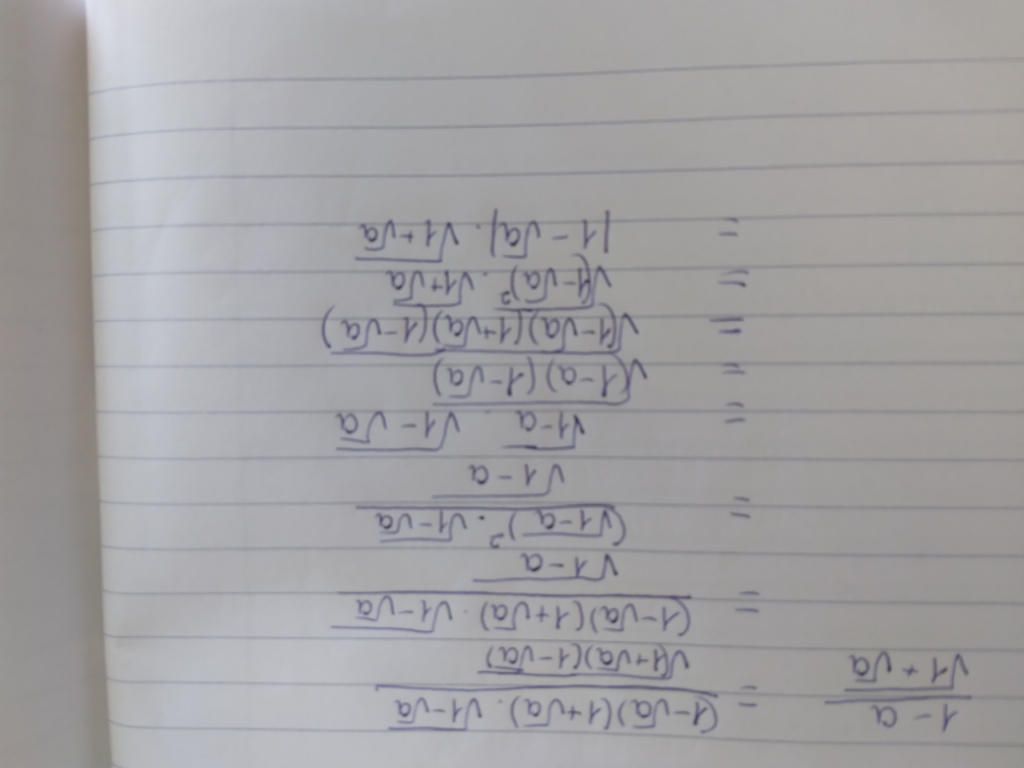 (1-a)/(√(1+√a)) = ((1-√a)(1+√a)·√(1-√a))/(√((1+√a)(1-√a)))
= ((1-√a)(1+√a)·√(1-√a))/(√(1-a))
= ((√(1-a))²·√(1-√a))/(√(1-a))
= √(1-a)·√(1-√a)
= √((1-a)(1-√a))
= √((1-√a)(1+√a)(1-√a))
= √((1-√a)²)·√(1+√a)
= |1-√a|·√(1+√a)